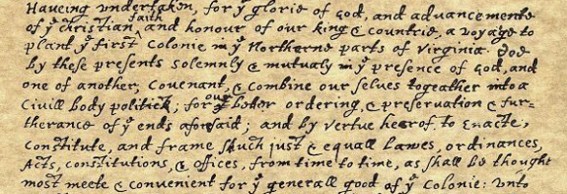 Haueing vndertaken, for yͤ glorie of God, and aduancemente
of yͤ christian faith and honour of our king & countrie, a voyage to
plant yͤ first Colonie in yͤ Northerne parts of Virginia. Doe
by these presents solemnly & mutualy in yͤ presence of God, and
one of another, Couenant, & combine our selues togeather into a
Ciuill body politick; for our better ordering, & preseruation & fur=
therance of yͤ ends aforesaid; and by vertue hearof, to Enacte,
Constitute, and frame shuch just & equall Lawes, ordinances,
Acts, constitutions, & offices, from time to time, as shall be thought
most meete & conuenient for yͤ generall good of yͤ Colonie: vnto